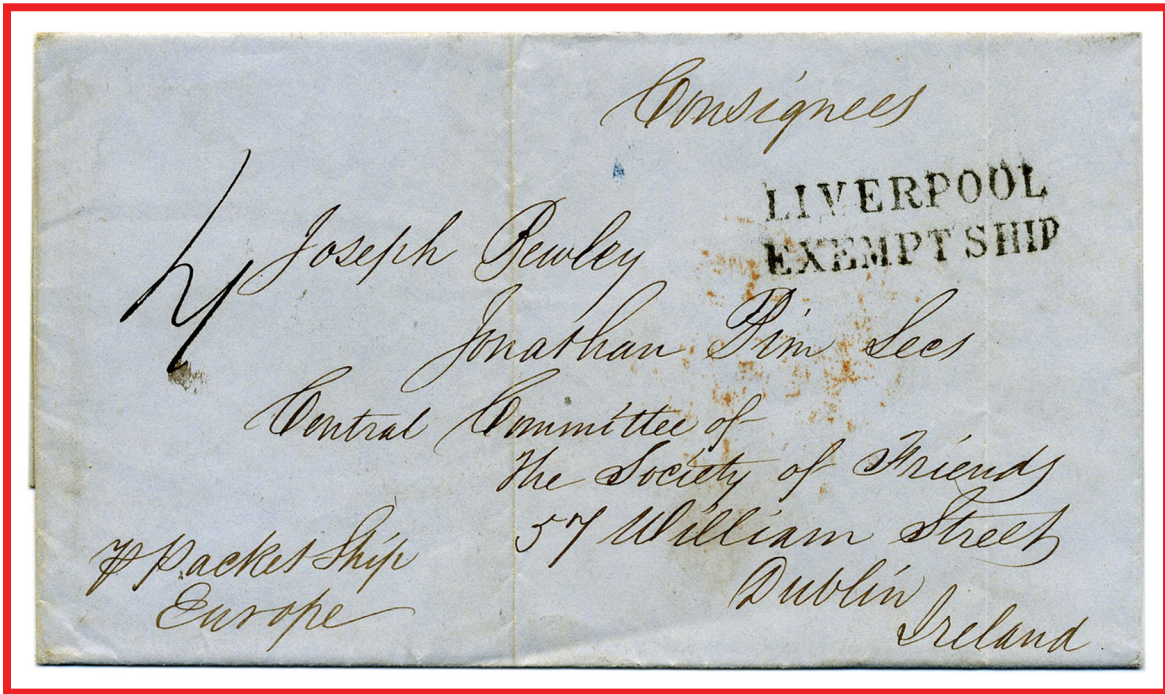 Consignees
LIVERPOOL
EXEMPT SHIP
4
Joseph Bewley
Jonathan Pim Secs
Central Committee of
the Society of Friends
57 William Street
Dublin
Ireland
p Packet Ship
Europe